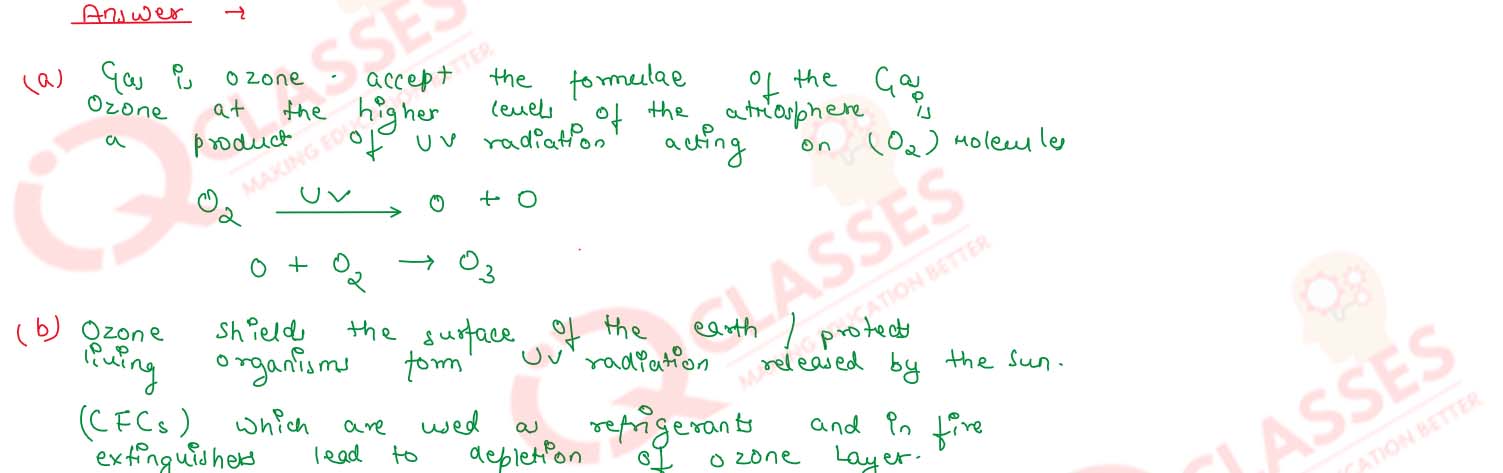 Answer →
(a) Gas is ozone. accept the formulae of the Gas
Ozone at the higher levels of the atmosphere is
a product of UV radiation acting on (O₂) Molecules
O₂ —UV→ O + O
O + O₂ → O₃
(b) Ozone shields the surface of the earth / protects
living organisms form UV radiation released by the Sun.
(CFCs) which are used as refrigerants and in fire
extinguishers lead to depletion of ozone Layer.
CLASSES
MAKING EDUCATION BETTER
CLASSES
MAKING EDUCATION BETTER
CLASSES
EDUCATION BETTER